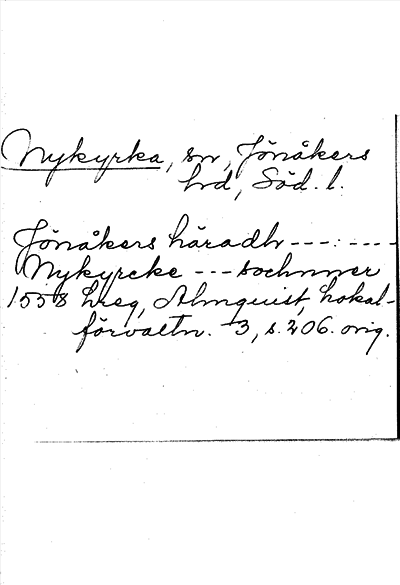 Nykyrka, sn, Jönåkers
hd, Söd. l.
Jönåkers häradh --- : ----
Nykyrcke --- sochnner
1558 hreg, Almquist, Lokal-
förvaltn. 3, s. 206. orig.